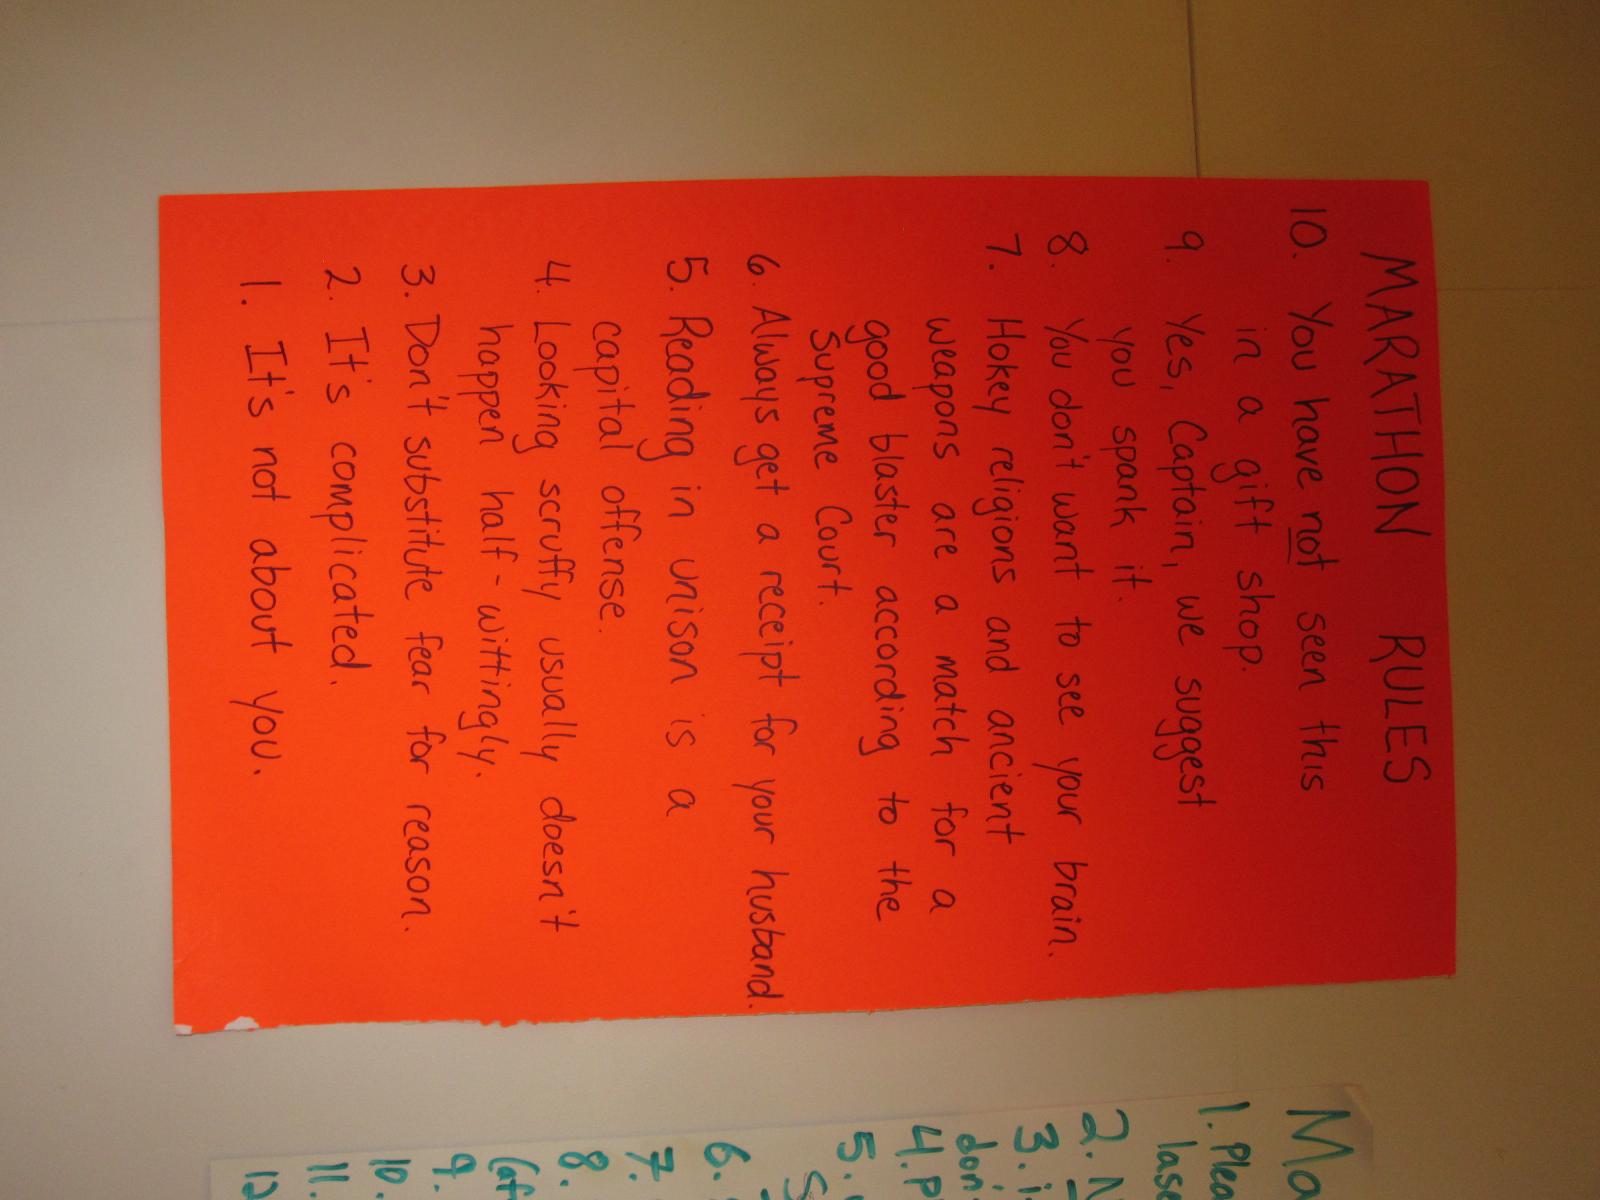 MARATHON RULES
10. You have not seen this
in a gift shop.
9. Yes, Captain, we suggest
you spank it.
8. You don't want to see your brain.
7. Hokey religions and ancient
weapons are a match for a
good blaster according to the
Supreme Court.
6. Always get a receipt for your husband.
5. Reading in unison is a
capital offense.
4. Looking scruffy usually doesn't
happen half-wittingly.
3. Don't substitute fear for reason.
2. It's complicated.
1. It's not about you.
Ma
1. Plea
lase
2. N
3. i
don
4. P
5.
6.
7.
8.
9.
10.
11.
12